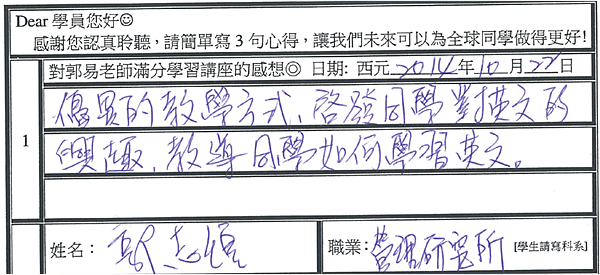 Dear 學員您好☺
感謝您認真聆聽，請簡單寫 3 句心得，讓我們未來可以為全球同學做得更好!
對郭易老師滿分學習講座的感想◎ 日期: 西元 2014 年 10 月 22 日
1
優異的教學方式，啓發同學對英文的
興趣，教導同學如何學習英文。
姓名： 志 職業： 管理研究所 [學生請寫科系]